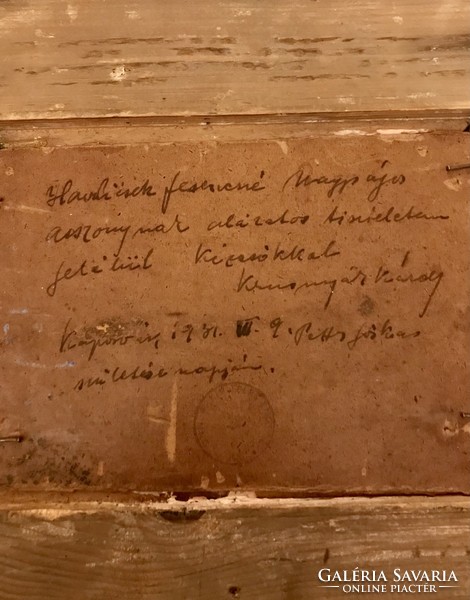 Havlicsek Ferencné Nagyságos
asszonynak alázatos tiszteletem
jeléül kézcsókkal
Kunvári Károly
Kaposvár, 1931. III. 9.
születése napján.
GALÉRIA SAVARIA
ONLINE PIACTÉR